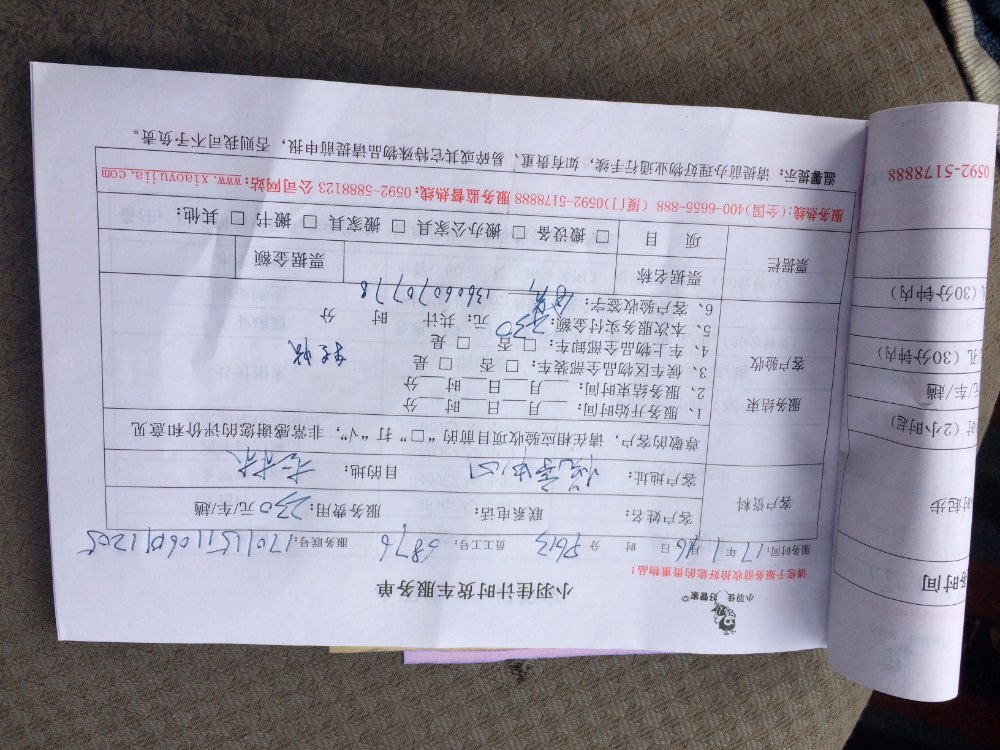 小羽佳 好管家
小羽佳计时货车服务单
请您于服务前收拾好您的贵重物品！
服务时间：17年1月16日 时 分 员工工号：6876 服务联号：170115110601205
客户资料
客户姓名： 联系电话： 服务费用：230元/车/趟
客户地址： 目的地：
尊敬的客户，请在相应验收项目前的“□”打“√”，非常感谢您的评价和意见
服务结束
客户验收
1、服务开始时间： 月 日 时 分
2、服务结束时间： 月 日 时 分
3、候车区物品全部装车：□ 否 □ 是
4、车上物品全部卸车：□ 否 □ 是
5、本次服务实付金额：230 元；共计 时 分
6、客户验收签字： 13606070778
票据栏
票据名称
票据金额
项 目
□ 搬设备 □ 搬办公家具 □ 搬家具 □ 搬书 □ 其他：
服务热线：(全国)400-6655-888 (厦门)0592-5178888 服务监督热线：0592-5888123 公司网站：www.xiaoyujia.com
温馨提示：请提前办理好物业通行手续，如有贵重、易碎或其它特殊物品请提前申报，否则我司不予负责。
时间
时起步
时 (2小时起)
元/车/趟
孔 (30分钟内)
(30分钟内)
0592-5178888